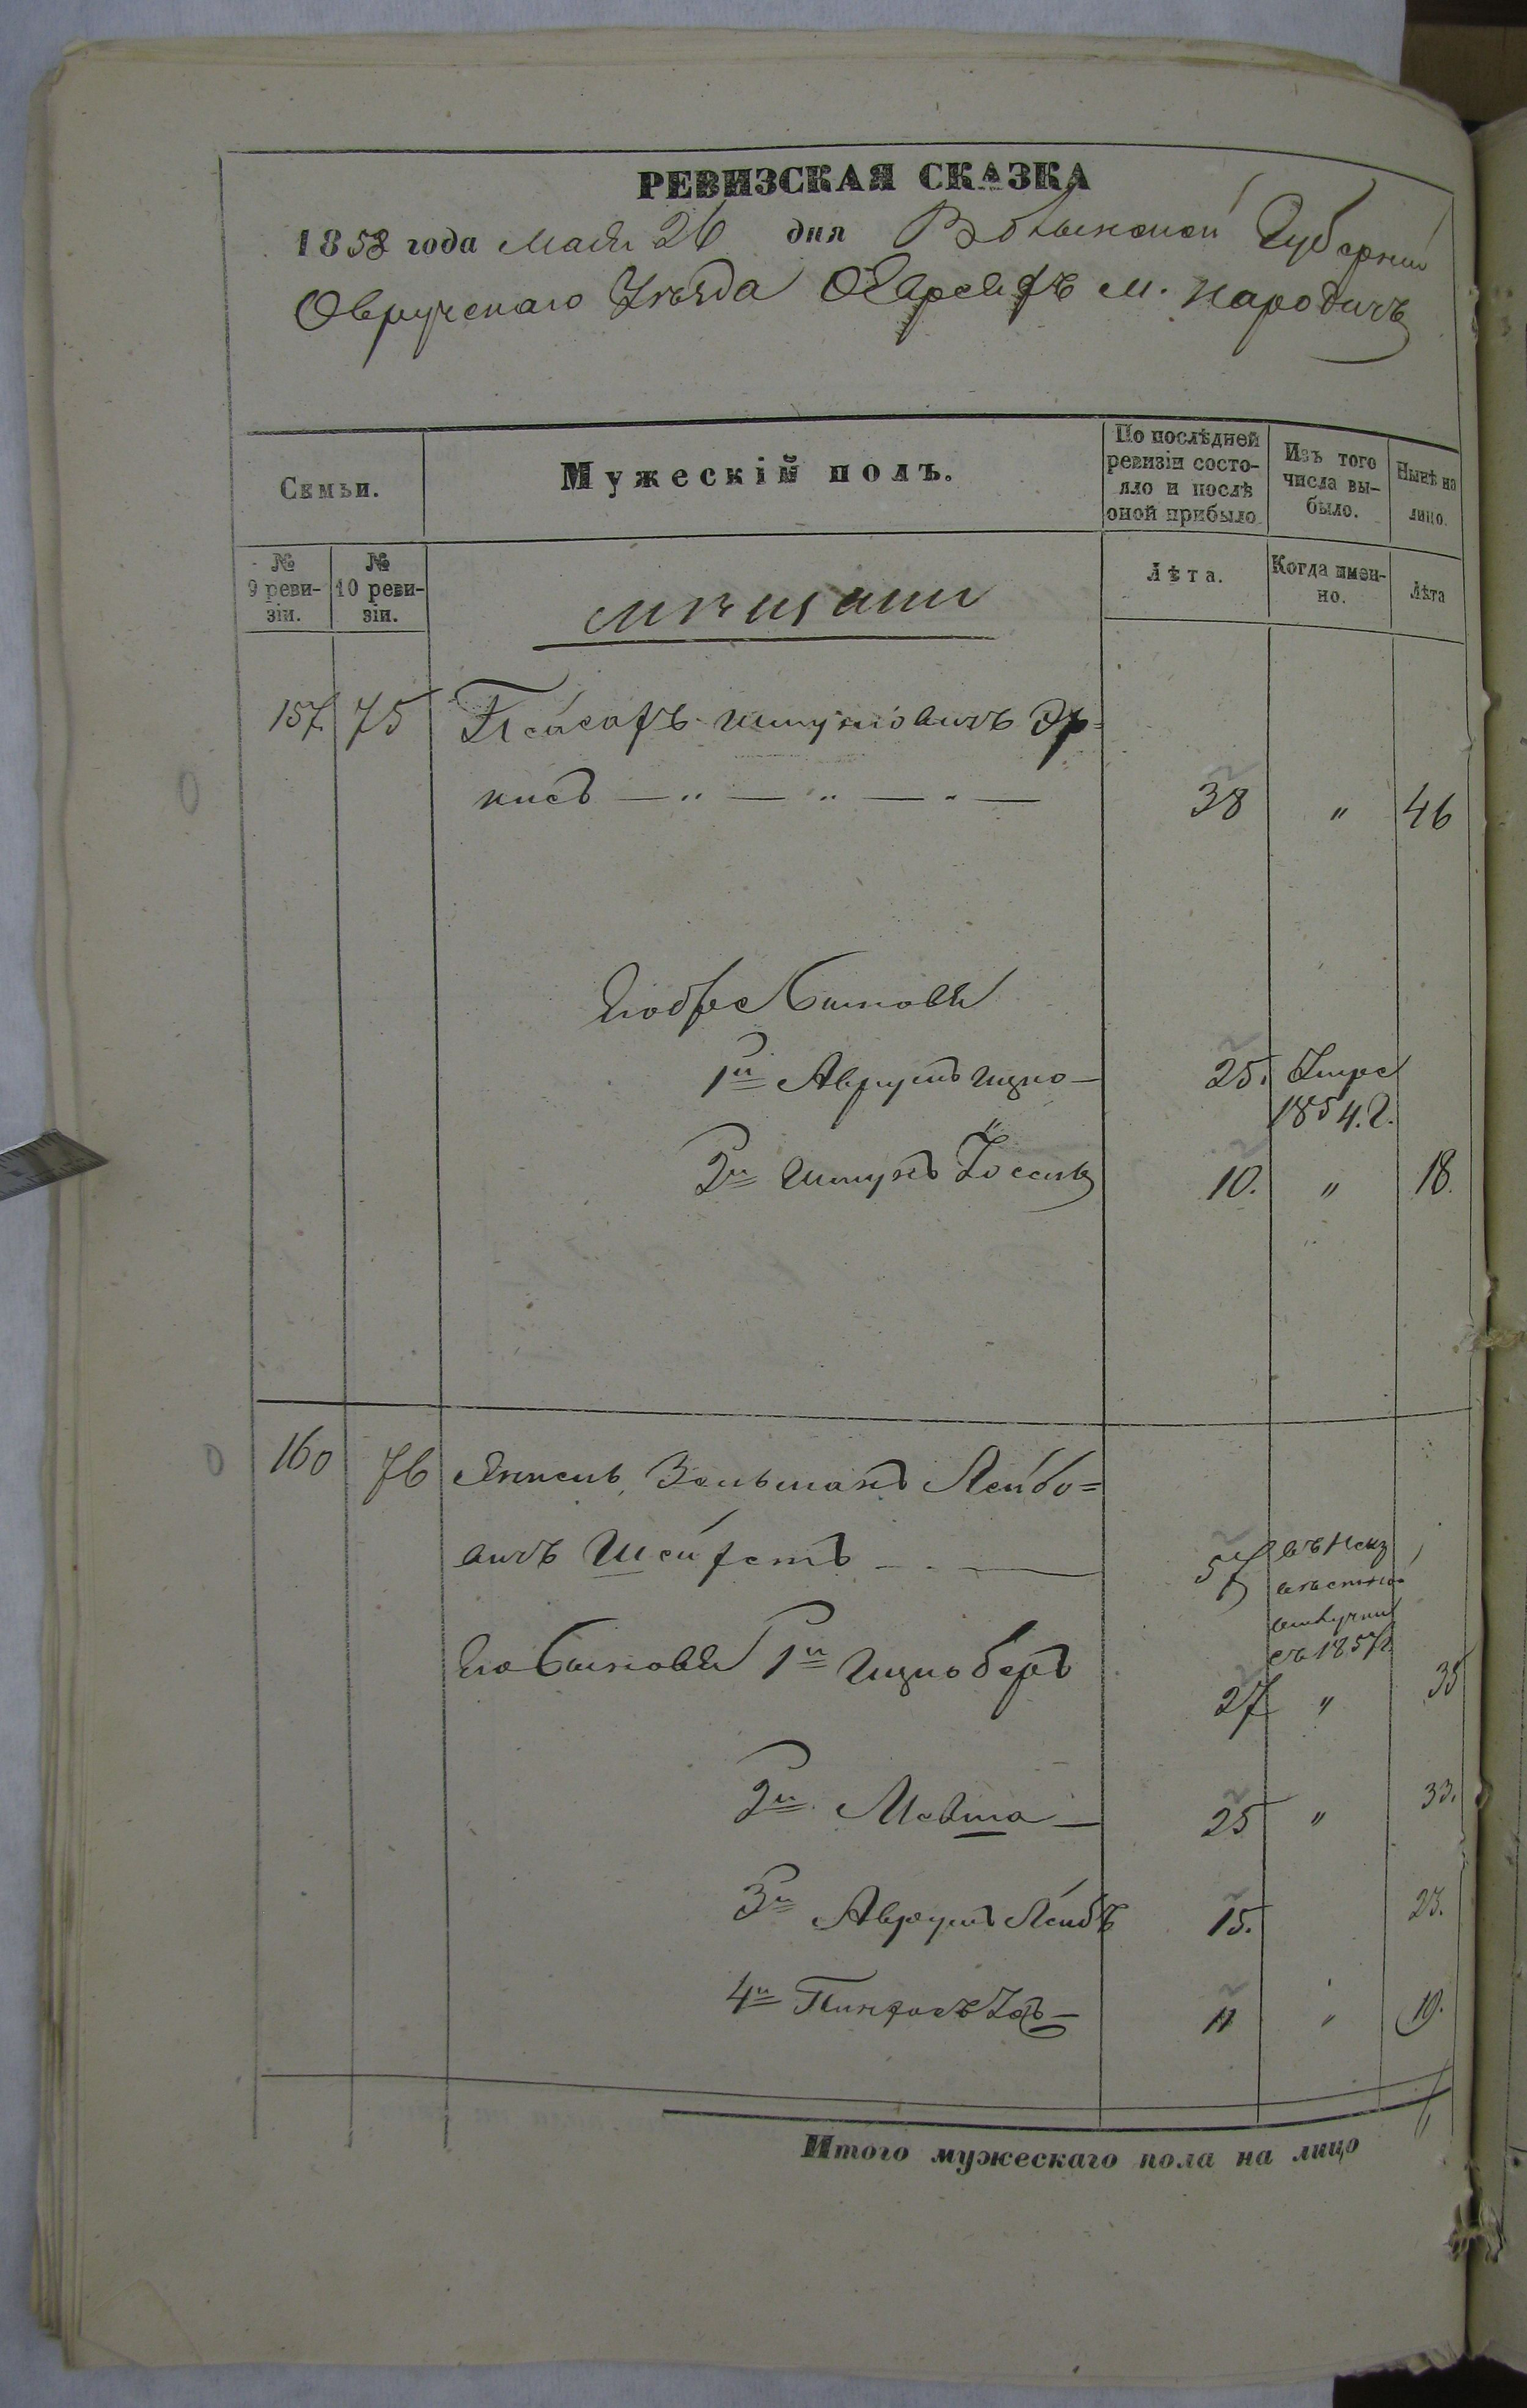 РЕВИЗСКАЯ СКАЗКА
1858 года Мая 26 дня Волынской Губернии
Овручскаго Уѣзда О Евреяхъ м. Народичъ
Семьи.
Мужескій полъ.
По послѣдней ревизіи состояло и послѣ оной прибыло
Изъ того числа выбыло.
Нынѣ на лицо.
№ 9 ревизіи.
№ 10 ревизіи.
мѣщане
Лѣта.
Когда именно.
Лѣта
157 75 Пейсахъ Шмуліовичъ
38 " 46
Его сыновья
1й Аврумъ Ицко 25. Умре
1854.г.
2й Шмуль Іоссель 10. " 18.
160 76 Янкель Зельманъ Лейбо=
вичъ 57 въ неиз
вѣстной
отлучки
съ 1857г.
Его Сыновья 1й Ицко Беръ 27 " 35
2й Мовша 25 " 33.
3й Аврумъ Лейбъ 15. 23.
4й Пинхасъ 11 " 19.
Итого мужескаго пола на лицо